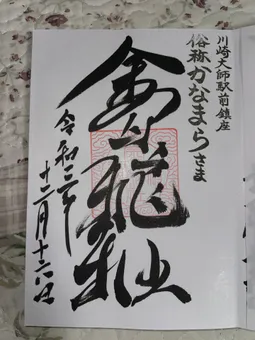 川崎大師駅前鎮座
俗称かなまらさま
金山神社
令和
十二月十六日